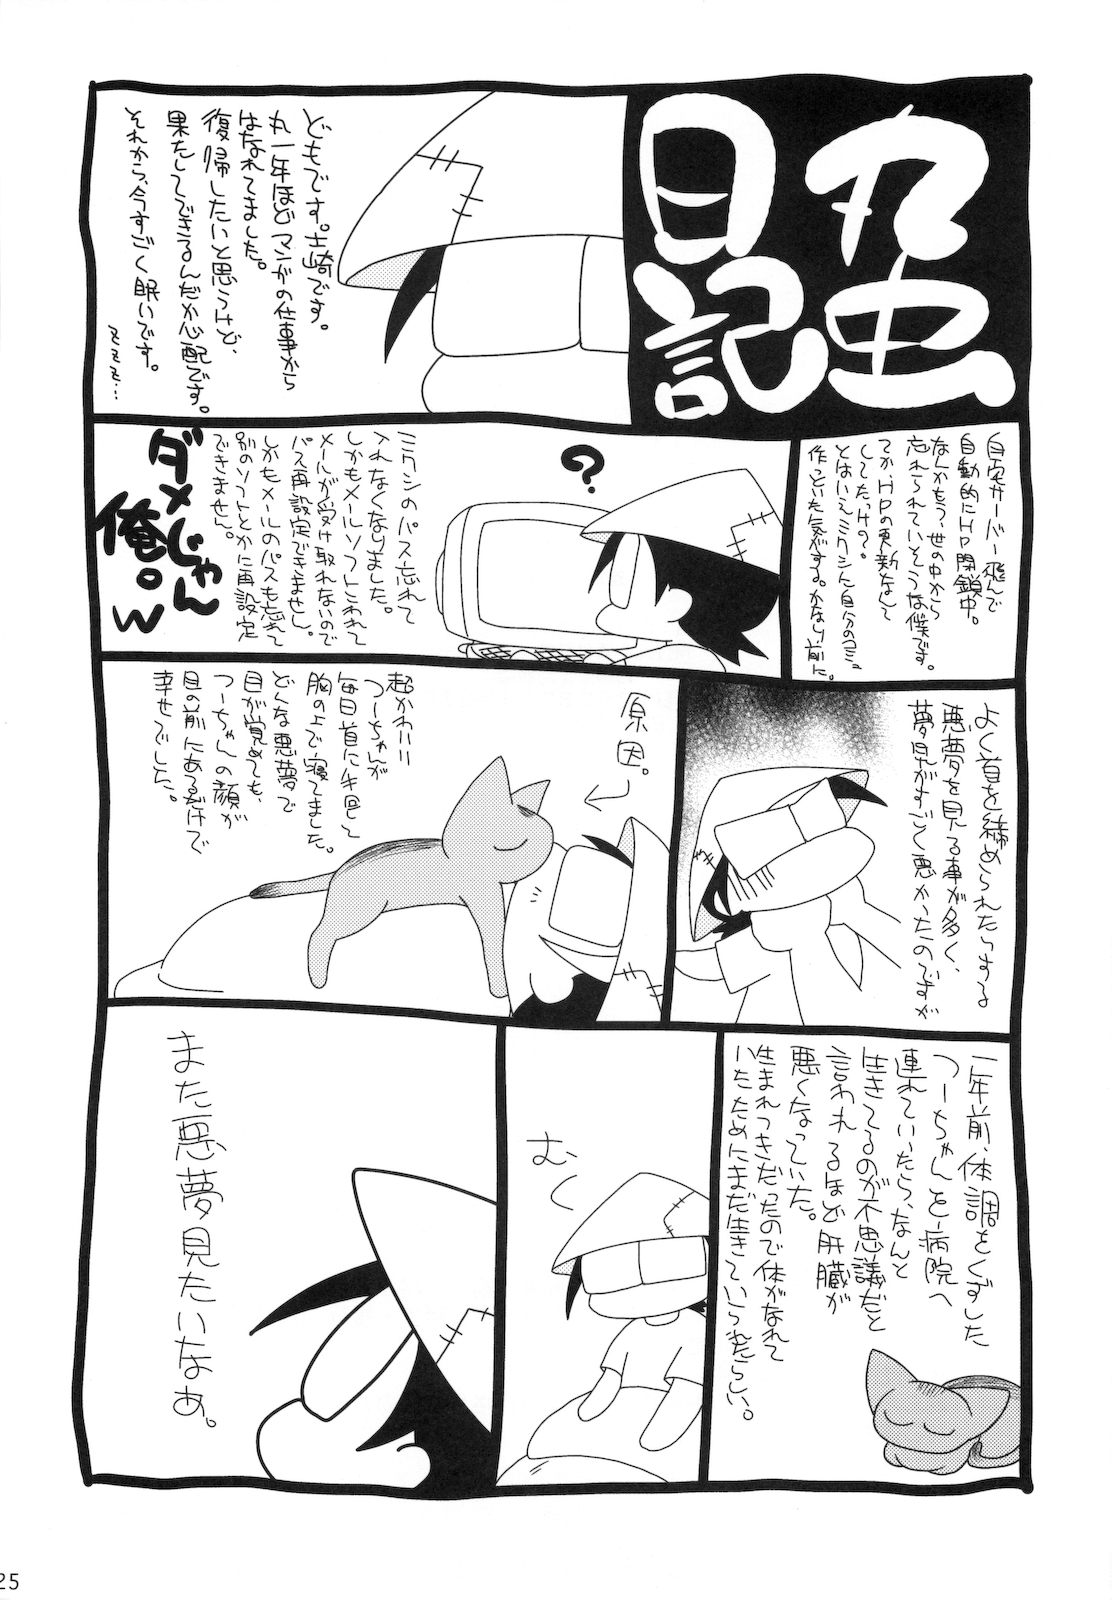 丸虫
日記
どもです。土崎です。
丸一年ほどマンガの仕事から
はなれてました。
復帰したいと思うけど、
果たしてできるんだか心配です。
それから、今すごく眠いです。
自宅サーバー飛んで
自動的にHP閉鎖中。
なんかもう、世の中から
忘れられていそうな僕です。
てか、HPの更新なんて
してた、け?。
とはいえミクシに自分の
作っていた気がする。かなり前に。
?
ミクシのパス忘れて
入れなくなりました。
しかもメールソフトこわれて
メールが受け取れないので
パス再設定できませんし。
しかもメールのパスも忘れて
別のソフトとかに再設定
できません。
ダメじゃん
俺。w
よく首を締められたりする
悪夢を見る事が多く、
夢見がすごく悪かったのですが
原因。
超かわ!!
つーちゃんが
毎日首に手置く
胸の上で寝てました。
どんな悪夢で
目が覚めても、
つーちゃんの顔が
目の前にあるだけで
幸せでした。
一年前、体調をくずした
つーちゃんを病院へ
連れていたら、なんと
生きてるのが不思議だと
言われるほど肝臓が
悪くなっていた。
生まれつきだったので体がなれて
いたためにまだ生きていられたらしい。
むく
また悪夢見たいなぁ。
25